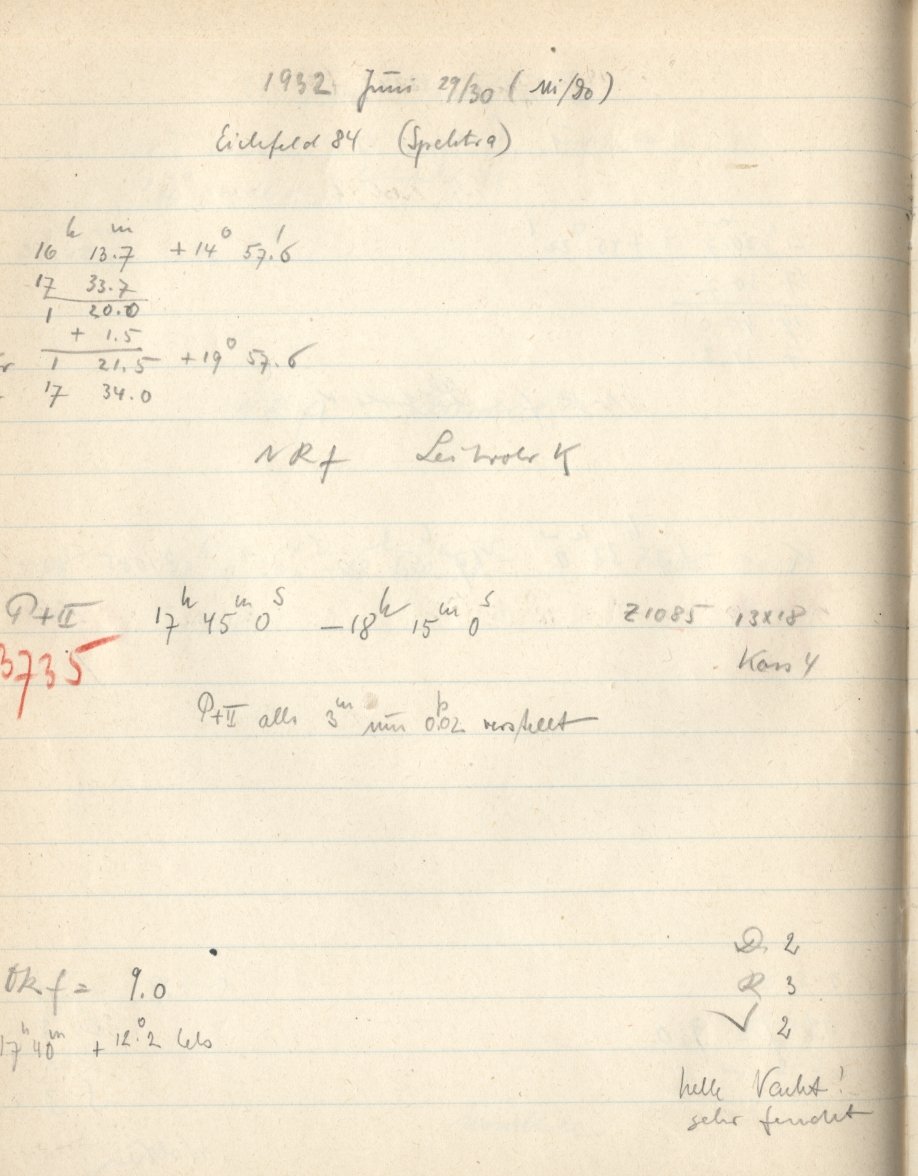 1932 Juni 29/30 (Mi/Do)
Eichfeld 84 (Spektra)
16h 13.m7 +14° 57.'6
17 33.7
1 20.0
+ 1.5
1 21.5 +19° 57.6
17 34.0
NRf Leitrohr K
P+II 17h 45m 0s –18h 15m 0s Z1085 13x18
3735 Kass 4
P+II alle 3m um 0.p02 verstellt
D 2
Okf = 9.0 R 3
✓ 2
17h 40m +12.°2 Cels
helle Nacht!
sehr feucht